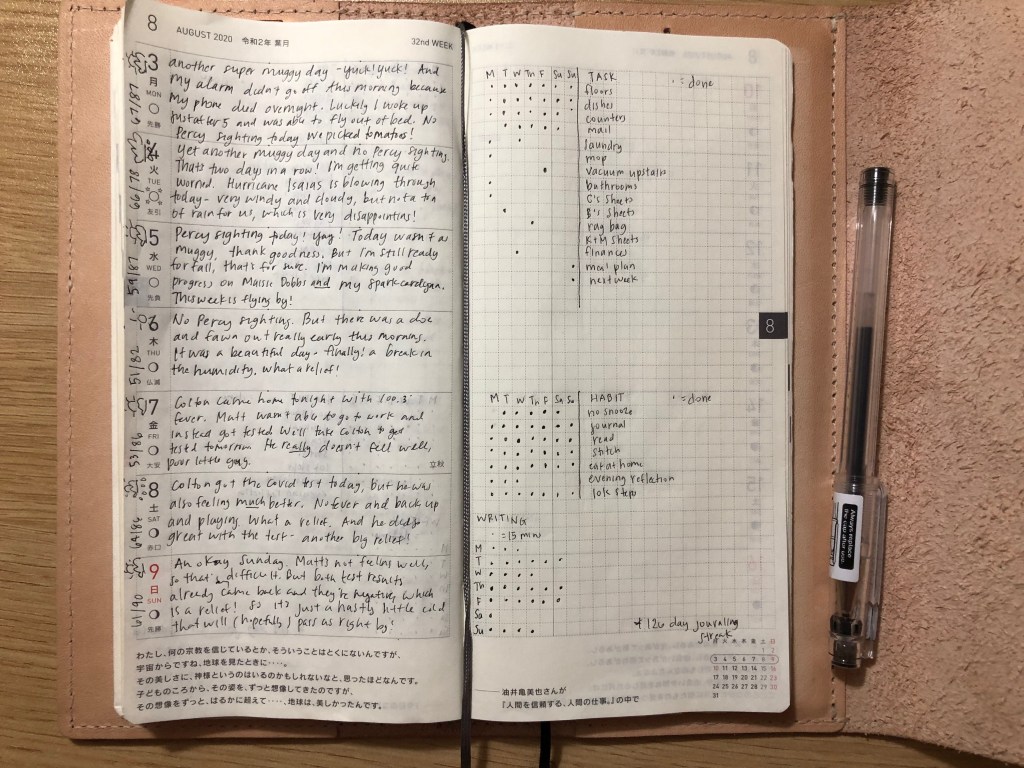 8 AUGUST 2020 令和2年 葉月 32nd WEEK
3 月 MON 先勝
67/87
another super muggy day - yuck! yuck! And
my alarm didn't go off this morning because
my phone died overnight. Luckily I woke up
just after 5 and was able to fly out of bed. No
Percy sighting today. We picked tomatoes!
火 TUE 友引
66/78
Yet another muggy day and no Percy sighting.
Thats two days in a row! I'm getting quite
worried. Hurricane Isaias is blowing through
today - very windy and cloudy, but not a ton
of rain for us, which is very disappointing!
5 水 WED 先負
59/87
Percy sighting today! Yay! Today wasn't as
muggy, thank goodness. But I'm still ready
for fall, that's for sure. I'm making good
progress on Maisie Dobbs and my Spark cardigan.
This week is flying by!
6 木 THU 仏滅
51/82
No Percy sighting. But there was a doe
and fawn out really early this morning.
It was a beautiful day - finally! a break in
the humidity, what a relief!
7 金 FRI 大安
53/86
Colton came home tonight with 100.3
fever. Matt wasn't able to go to work and
instead got tested. Will take Colton to get
tested tomorrow. He really doesn't feel well,
poor little guy.
立秋
8 土 SAT 赤口
64/86
Colton got the Covid test today, but he was
also feeling much better. No fever and back up
and playing. What a relief. And he did
great with the test - another big relief!
9 日 SUN 先勝
61/90
An okay Sunday. Matt's not feeling well,
so that's difficult. But both test results
already came back and they're negative, which
is a relief! So it's just a nasty little cold
that will (hopefully) pass us right by!
わたし、何の宗教を信じているとか、そういうことはとくにないんですが、
宇宙からですね、地球を見たときに‥‥。
その美しさに、神様というのはいるのかもしれないなと、思ったほどなんです。
子どものころから、その姿を、ずっと想像してきたのですが、
その想像をずっと、はるかに超えて‥‥、地球は、美しかったんです。
M T W Th F Sa Su TASK • = done
floors
dishes
counters
mail
laundry
mop
vacuum upstairs
bathrooms
C's sheets
B's sheets
rag bag
K+M sheets
finances
meal plan
next week
8
M T W Th F Sa Su HABIT • = done
no snooze
journal
read
stitch
eat at home
evening reflection
10k steps
WRITING
• = 15 min
M
T
W
Th
F
Sa
Su
* 126 day journaling
streak
月 火 水 木 金 土 日
1 2
3 4 5 6 7 8 9
10 11 12 13 14 15 16
17 18 19 20 21 22 23
24 25 26 27 28 29 30
31
油井亀美也さんが
『人間を信頼する、人間の仕事。』の中で
Always replace
the cap after use.